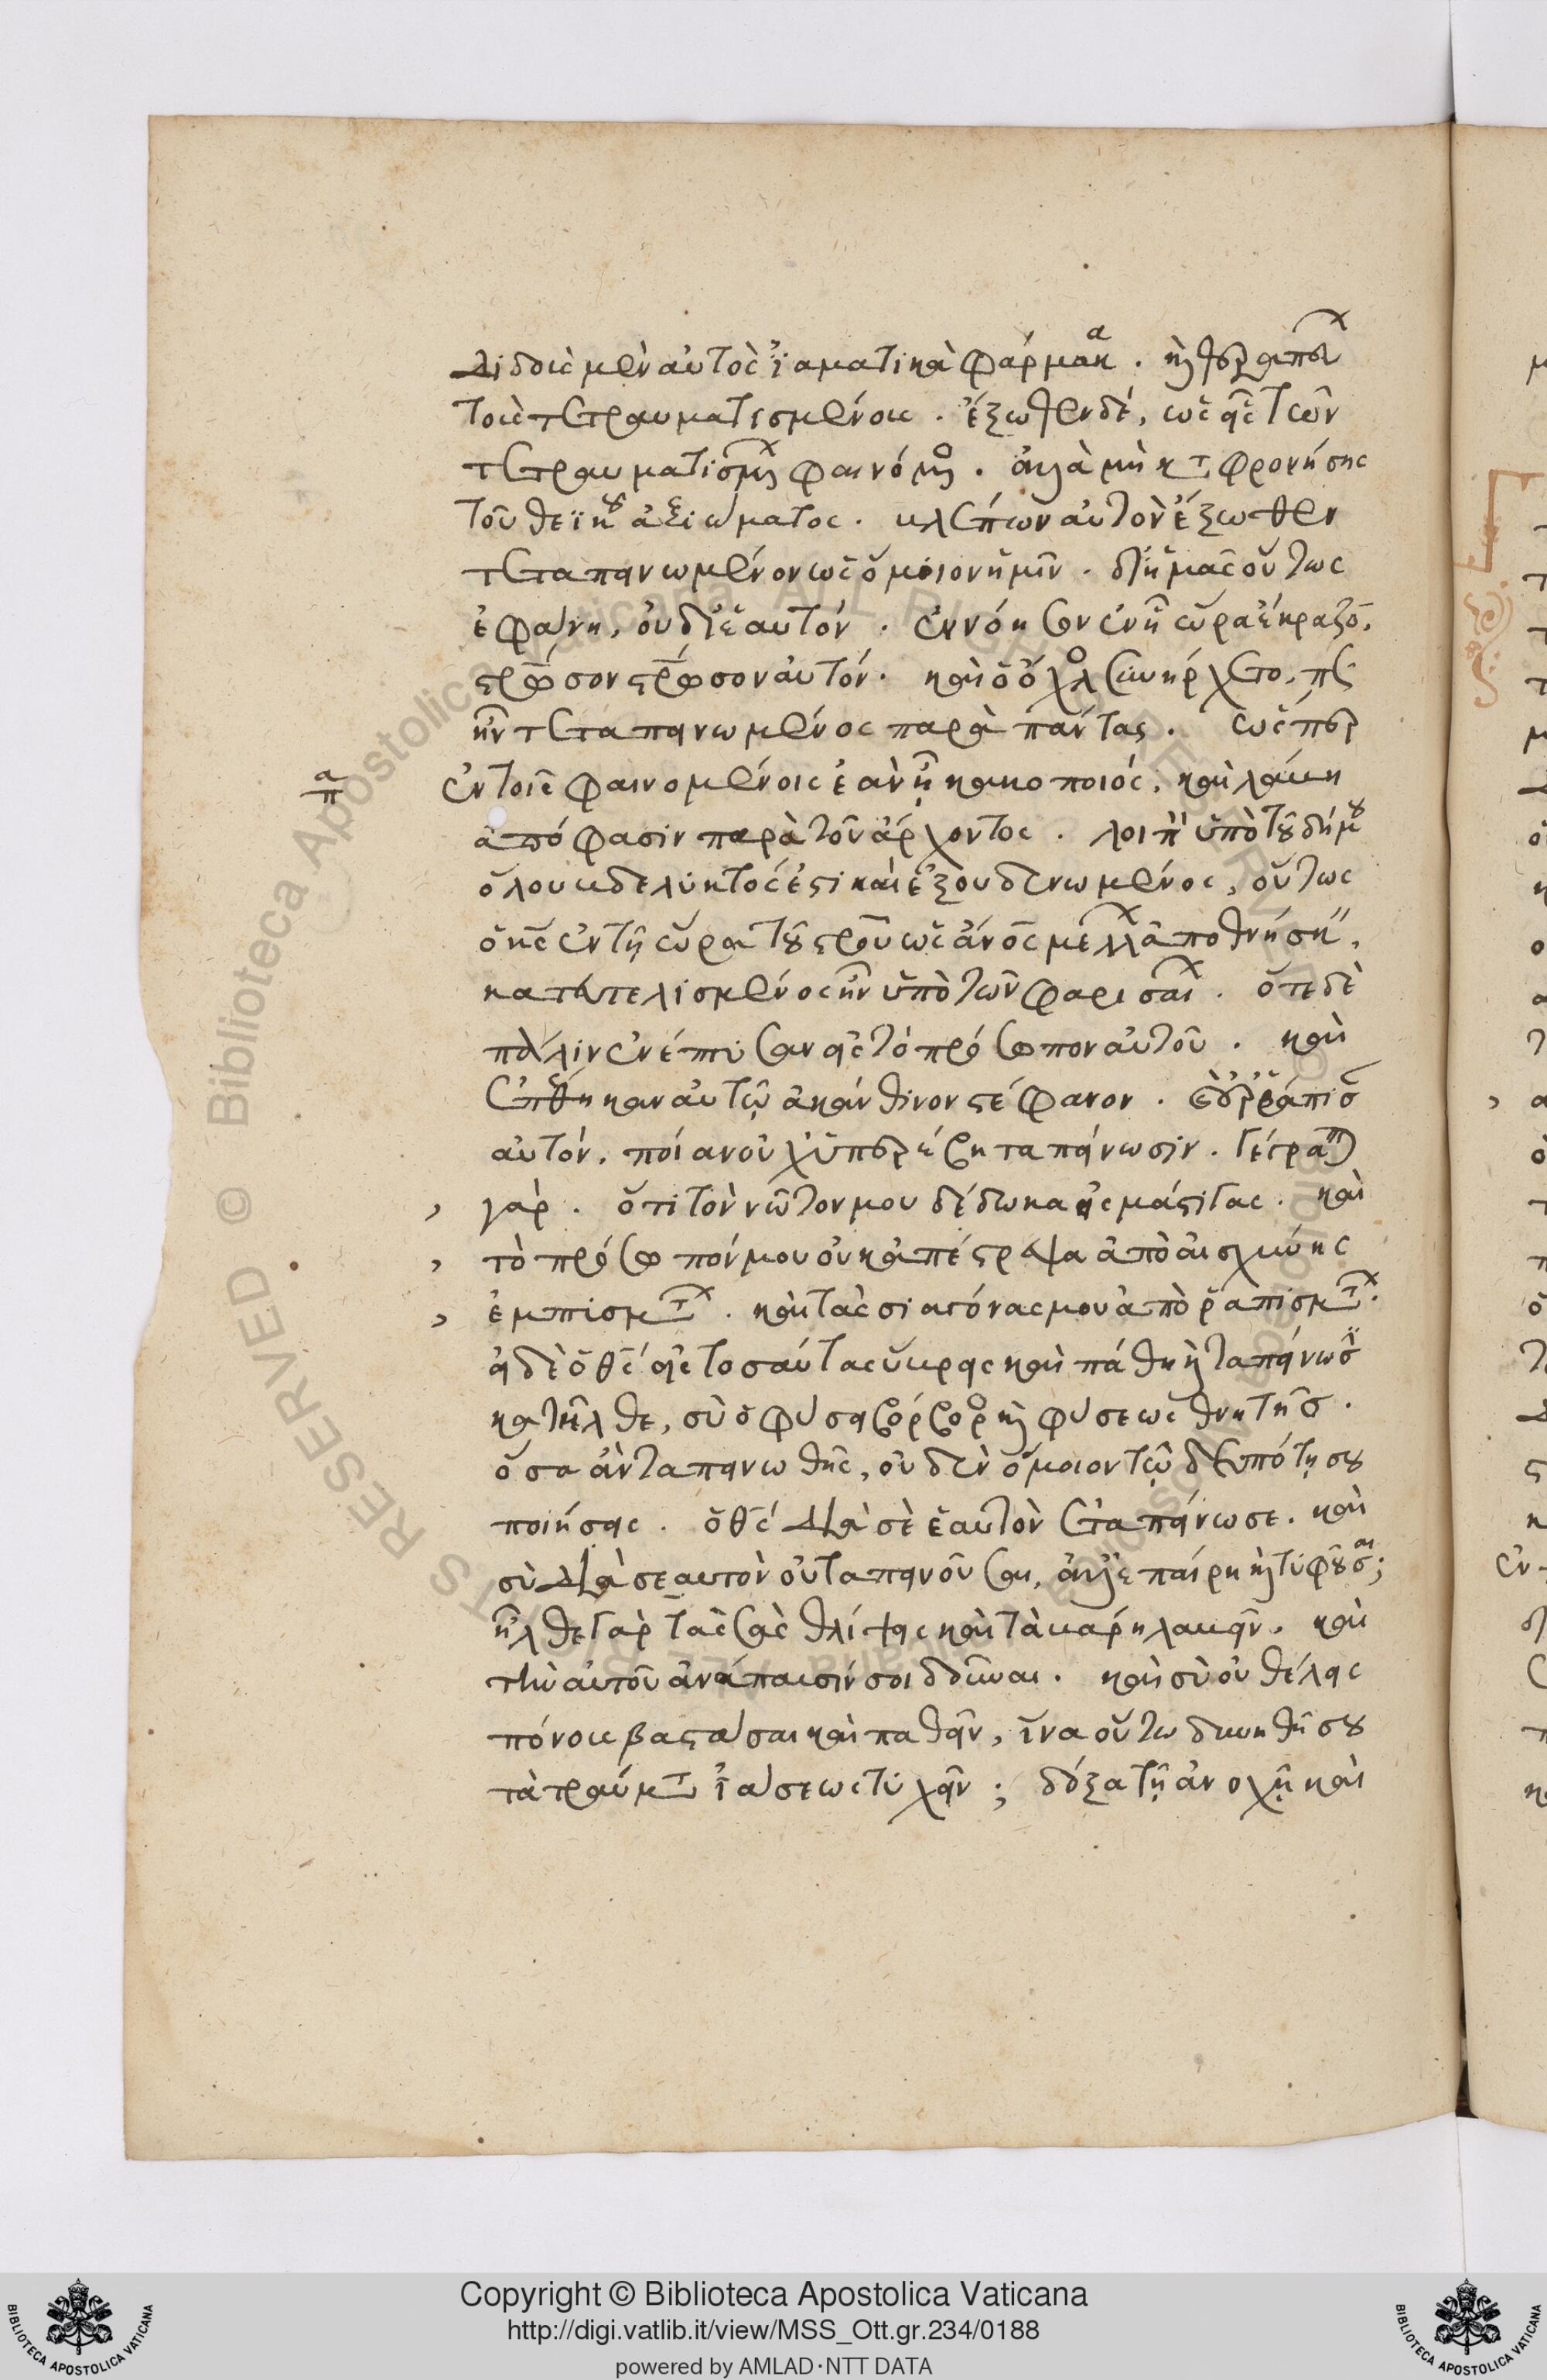 διδοὺς μὲν αὐτὸς ἰαματικὰ φάρμακα. καὶ θεραπείαν
τοῖς τετραυματισμένοις. ἔξωθεν δὲ, ὡς εἷς τῶν
τετραυματισμένων φαινόμενος. ἀλλὰ μὴ καταφρονήσης
τοῦ θεϊκοῦ ἀξιώματος. βλέπων αὐτὸν ἔξωθεν
τεταπεινωμένον ὡς ὅμοιον ἡμῖν. δι' ἡμᾶς οὕτως
ἐφάνη, οὐ δι' ἑαυτόν. ἐννόησον ἐν ᾗ ὥρα ἔκραζον,
στρωσον στρωσον αὐτόν. καὶ ὁ ὄχλος συνήρχετο, πῶς
ἦν τεταπεινωμένος παρὰ πάντας. ὥσπερ
ἐν τοῖς φαινομένοις ἐὰν ἦ κακοποιός, καὶ λάβη
ἀπόφασιν παρὰ τοῦ ἄρχοντος. λοιπὸν ὑπὸ τοῦ δήμου
ὅλου βδελυκτός ἐστι καὶ ἐξουδενωμένος, οὕτως
ὁ κς ἐν τῇ ὥρα τοῦ στρου ὡς ἄνος μέλλων ἀποθνήσκειν,
κατευτελισμένος ἦν ὑπὸ τῶν φαρισαίων. ὅτε δὲ
πάλιν ἐνέπτυσαν εἰς τὸ πρόσωπον αὐτοῦ. καὶ
ἐπέθηκαν αὐτῷ ἀκάνθινον στέφανον.
αὐτόν, ποίαν οὐχ ὑπερέβη ταπείνωσιν. γέγραπται
γὰρ. ὅτι τὸν νῶτον μου δέδωκα εἰς μάστιγας. καὶ
τὸ πρόσωπόν μου οὐκ ἀπέστρεψα ἀπὸ αἰσχύνης
ἐμπτυσμάτων. καὶ τὰς σιαγόνας μου ἀπὸ ῥαπισμάτων.
εἰ δὲ ὁ θς εἰς τοσαύτας ὕβρεις καὶ πάθη καὶ ταπείνωσιν
κατῆλθε, σὺ ὁ φύσει βόρβορος καὶ φύσεως θνητῆς.
ὅσα ἂν ταπεινωθῆς, οὐδὲν ὅμοιον τῷ δεσπότη σου
ποιήσεις. ὁ θς διὰ σὲ ἑαυτὸν ἐταπείνωσε. καὶ
σὺ διὰ σεαυτὸν οὐ ταπεινοῦσαι, ἀλλ' ἐπαίρη καὶ τυφοῦσαι;
ἦλθε γὰρ τὰς σὰς θλίψεις καὶ τὰ βάρη λαβεῖν. καὶ
τὴν αὐτοῦ ἀνάπαυσίν σοι δοῦναι. καὶ σὺ οὐ θέλεις
πόνους βαστάσαι καὶ παθεῖν, ἵνα οὕτω δυνηθῆ σου
τὰ τραύματα ἰάσεως τυχεῖν; δόξα τῇ ἀνοχῇ καὶ
Copyright © Biblioteca Apostolica Vaticana
http://digi.vatlib.it/view/MSS_Ott.gr.234/0188
powered by AMLAD·NTT DATA
BIBLIOTECA APOSTOLICA VATICANA
BIBLIOTECA APOSTOLICA VATICANA